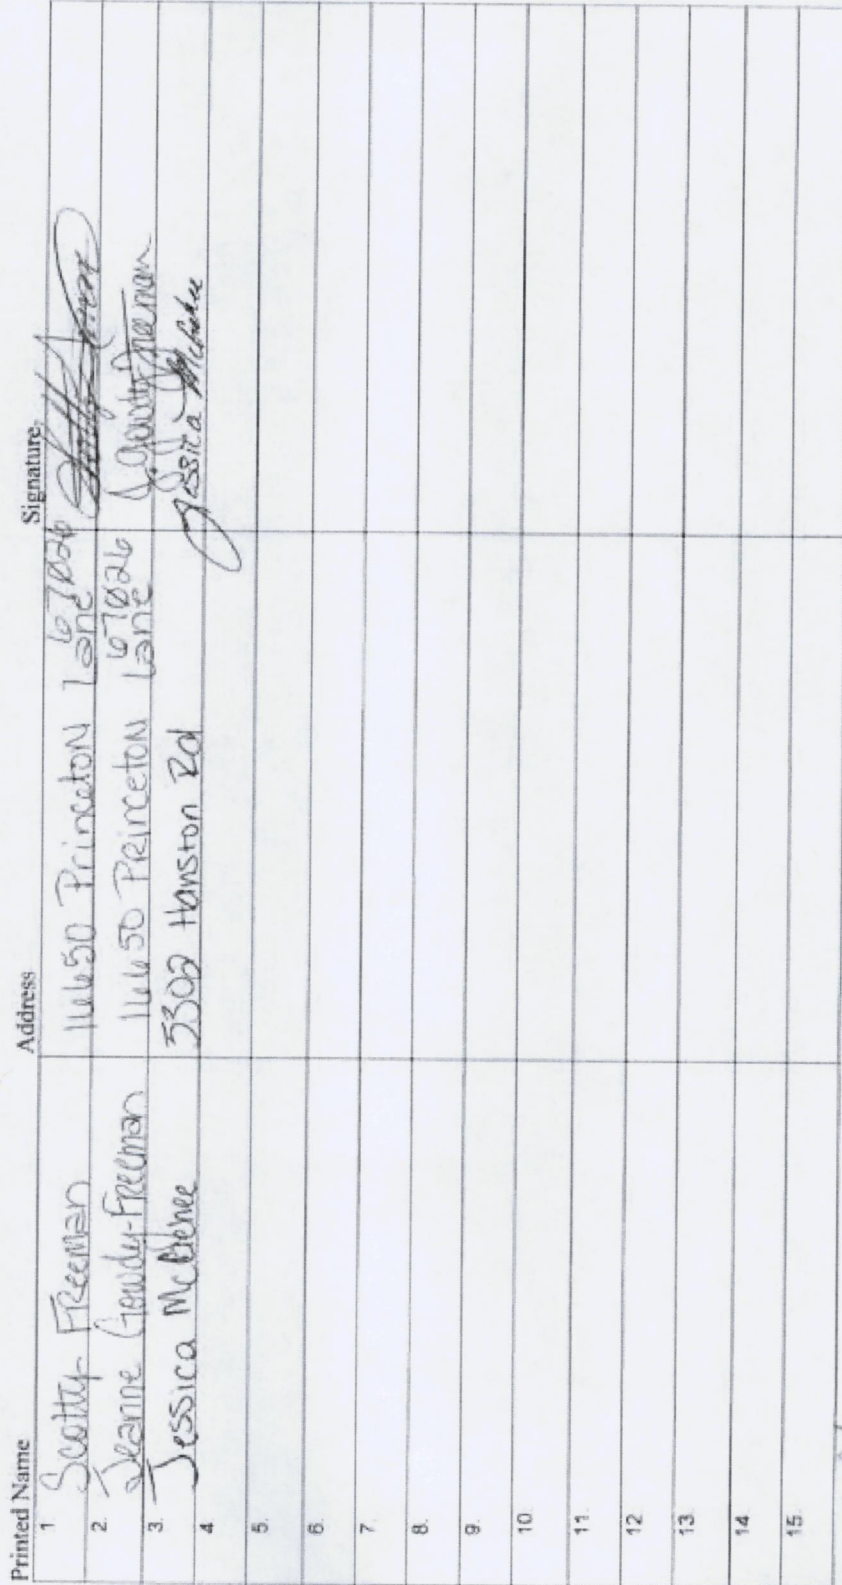 Printed Name Address Signature
1 Scotty Freeman 16650 Princeton Lane 67026
2. Jeanne Gowdy-Freeman 16650 Princeton Lane 67026 J Gowdy-Freeman
3. Jessica McGehee 5302 Hanston Rd Jessica McGehee
4
5.
6.
7.
8.
9.
10.
11.
12
13.
14
15.